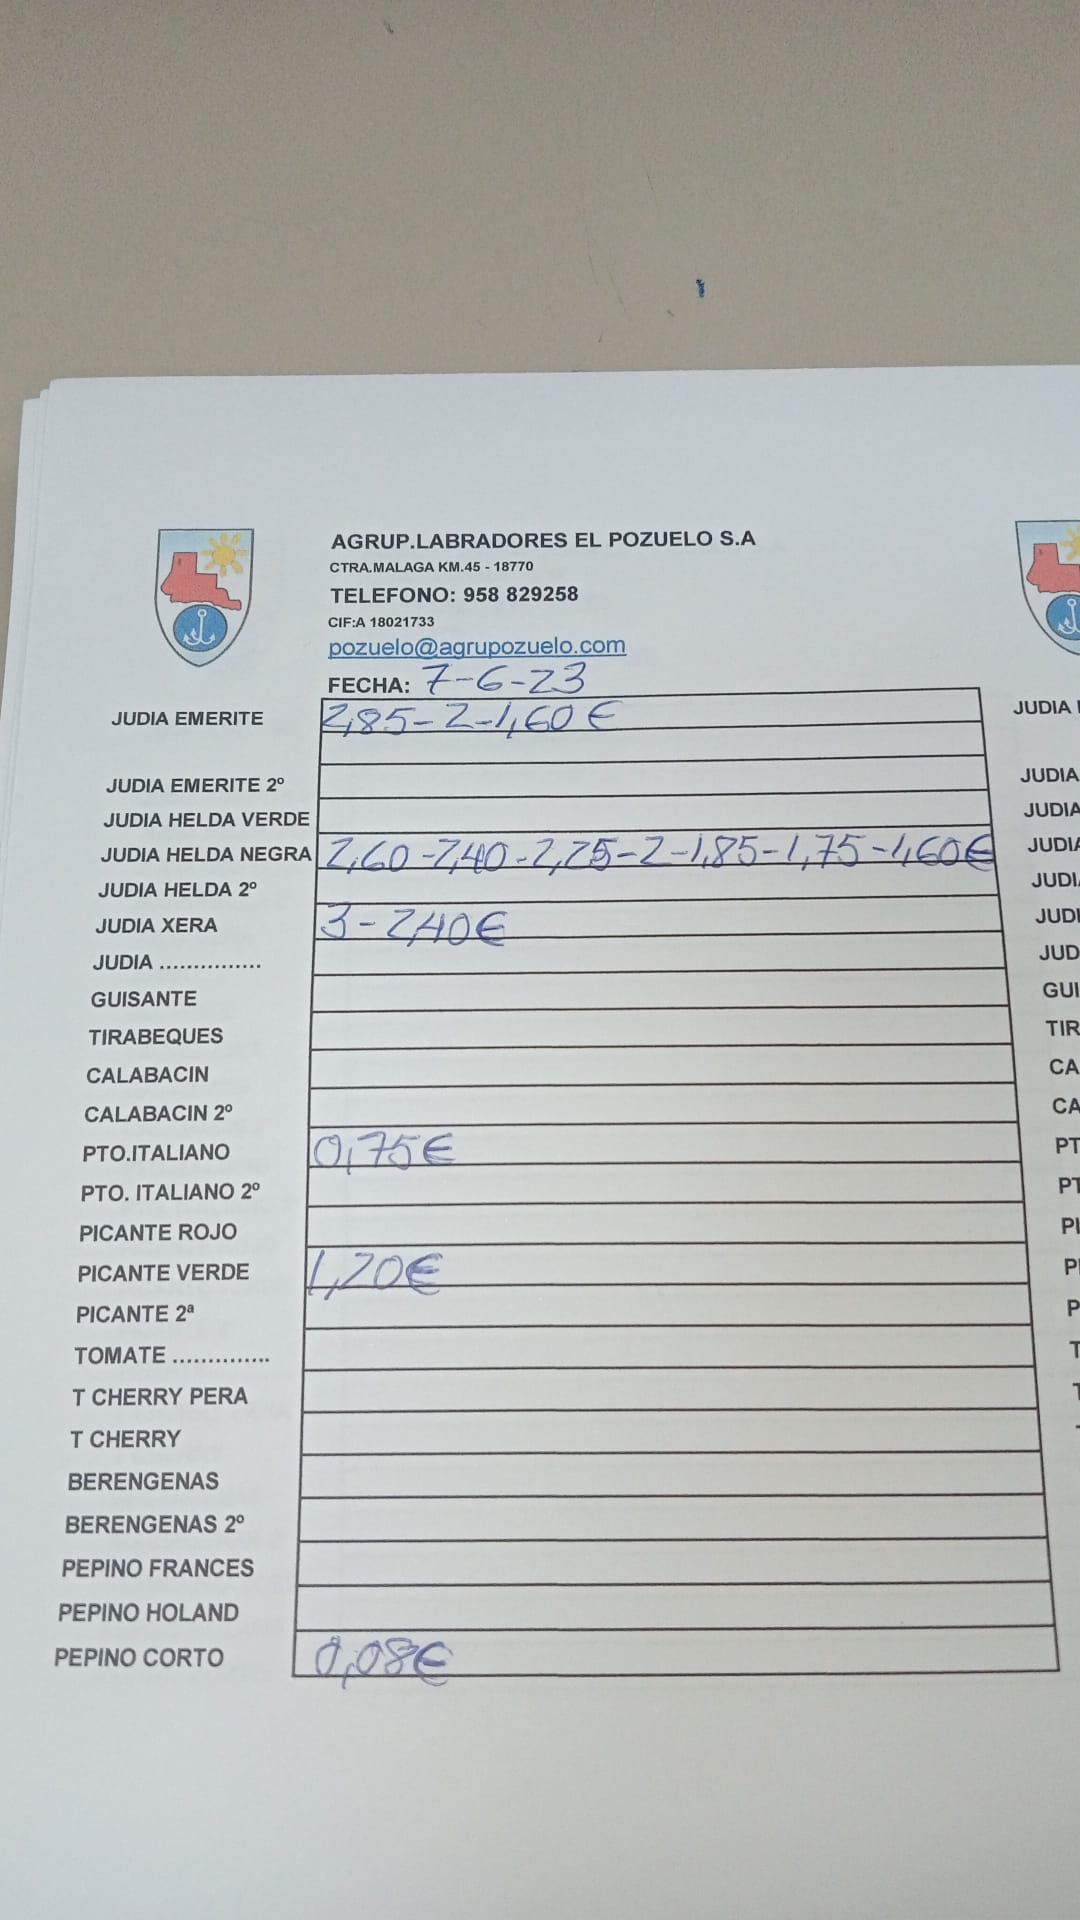 AGRUP.LABRADORES EL POZUELO S.A
CTRA.MALAGA KM.45 - 18770
TELEFONO: 958 829258
CIF:A 18021733
pozuelo@agrupozuelo.com
FECHA: 7-6-23
JUDIA EMERITE 2,85-2-1,60€
JUDIA EMERITE 2º
JUDIA HELDA VERDE
JUDIA HELDA NEGRA 2,60-2,40-2,25-2-1,85-1,75-1,60€
JUDIA HELDA 2º
JUDIA XERA 3-2,40€
JUDIA ...............
GUISANTE
TIRABEQUES
CALABACIN
CALABACIN 2º
PTO.ITALIANO 0,75€
PTO. ITALIANO 2º
PICANTE ROJO
PICANTE VERDE 1,20€
PICANTE 2ª
TOMATE ..............
T CHERRY PERA
T CHERRY
BERENGENAS
BERENGENAS 2º
PEPINO FRANCES
PEPINO HOLAND
PEPINO CORTO 0,08€
JUDIA
JUDIA
JUDIA
JUDIA
JUDI
JUDI
JUD
GUI
TIR
CA
CA
PT
PT
PI
P
P
T
T